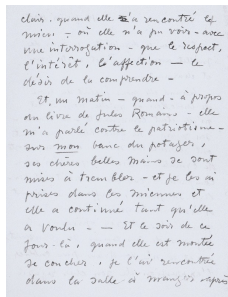 clair. quand elle a rencontré le
mien - où elle n'a pu voir - avec
une interrogation - que le respect,
l'intérêt, l'affection - le
désir de la comprendre -
Et, un matin - quand - à propos
du livre de Jules Romains - elle
m'a parlé contre le patriotisme -
sur mon banc du potager,
ses chères belles mains se sont
mises à trembler - et je les ai
prises dans les miennes et
elle a continué tant qu'elle
a voulu - - Et le soir de ce
jour-là, quand elle est montée
se coucher, je l'ai rencontrée
dans la salle à manger après